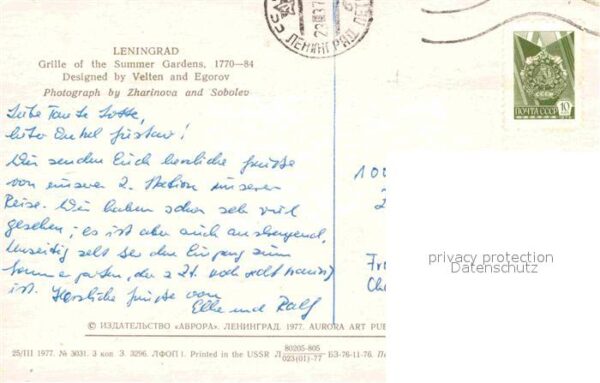 LENINGRAD
Grille of the Summer Gardens, 1770—84
Designed by Velten and Egorov
Photograph by Zharinova and Sobolev
ЛЕНИНГРАД
ПОЧТА СССР 10
Liebe Tante Lotte,
lieber Onkel Gustav!
Wir senden Euch herzliche Grüße
von unserer 2. Station unserer
Reise. Wir haben schon sehr viel
gesehen; es ist aber auch anstrengend.
seht Ihr den Eingang zum
Sommergarten, der z. Zt. noch nicht
ist. Herzliche Grüße von
Elke und Ralf
100
2
Fr
Ch
privacy protection
Datenschutz
© ИЗДАТЕЛЬСТВО «АВРОРА». ЛЕНИНГРАД. 1977. AURORA ART PUB
25/III 1977. № 3031. 3 коп. З. 3296. ЛФОП 1. Printed in the USSR Л 80205-805
023(01)-77 БЗ-76-11-76. П